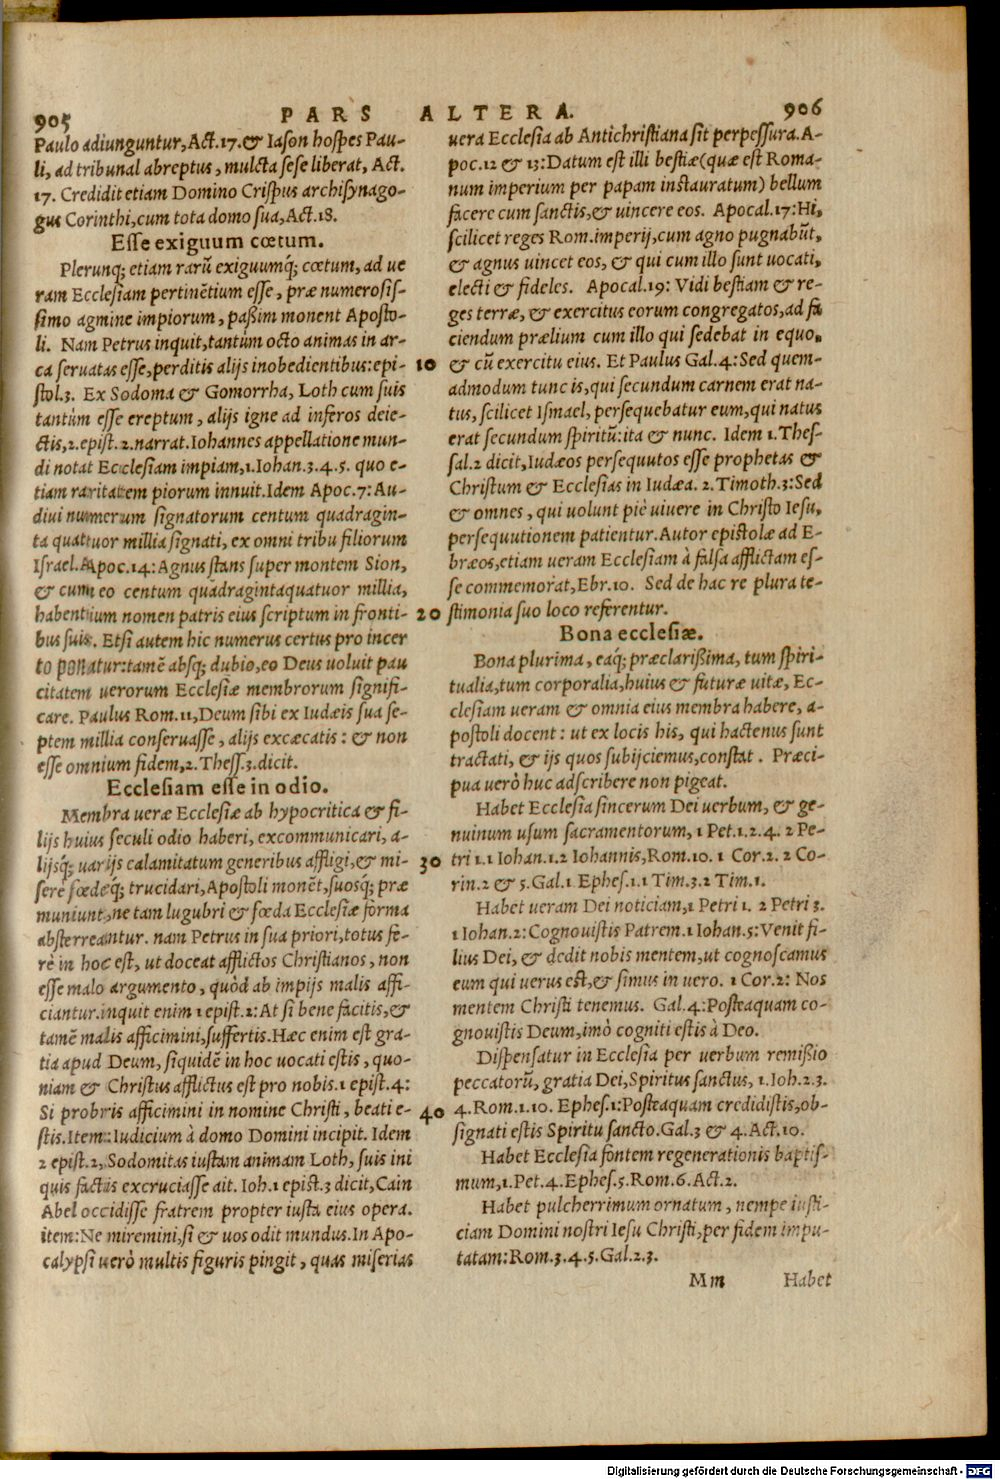 905 PARS ALTERA. 906
Paulo adiunguntur, Act.17.& Iason hospes Pau-
li, ad tribunal abreptus, mulcta sese liberat, Act.
17. Credidit etiam Domino Crispus archisynago-
gus Corinthi, cum tota domo sua, Act.18.
Esse exiguum cœtum.
Plerunq; etiam rarũ exiguumq́; cœtum, ad ue
ram Ecclesiam pertinẽtium esse, præ numerosis-
simo agmine impiorum, paßim monent Aposto-
li. Nam Petrus inquit, tantùm octo animas in ar-
ca seruatas esse, perditis alijs inobedientibus: epi- 10
stol.3. Ex Sodoma & Gomorrha, Loth cum suis
tantùm esse ereptum, alijs igne ad inferos deie-
ctis, 2.epist.2.narrat. Iohannes appellatione mun-
di notat Ecclesiam impiam, 1.Iohan.3.4.5. quo e-
tiam raritatem piorum innuit. Idem Apoc.7: Au-
diui numerum signatorum centum quadragin-
ta quattuor millia signati, ex omni tribu filiorum
Israel. Apoc.14: Agnus stans super montem Sion,
& cum eo centum quadragintaquatuor millia,
habentium nomen patris eius scriptum in fronti- 20
bus suis. Etsi autem hic numerus certus pro incer
to ponatur: tamẽ absq; dubio, eo Deus uoluit pau
citatem uerorum Ecclesiæ membrorum signifi-
care. Paulus Rom.11, Deum sibi ex Iudæis sua se-
ptem millia conseruasse, alijs excæcatis: & non
esse omnium fidem, 2. Thess.3.dicit.
Ecclesiam esse in odio.
Membra ueræ Ecclesiæ ab hypocritica & fi-
lijs huius seculi odio haberi, excommunicari, a-
lijsq́; uarijs calamitatum generibus affligi, & mi- 30
serè fœdeq́; trucidari, Apostoli monẽt, suosq́; præ
muniunt, ne tam lugubri & fœda Ecclesiæ forma
absterreantur. nam Petrus in sua priori, totus fe-
rè in hoc est, ut doceat afflictos Christianos, non
esse malo argumento, quòd ab impijs malis affi-
ciantur. inquit enim 1 epist.2: At si bene facitis, &
tamẽ malis afficimini, suffertis. Hæc enim est gra-
tia apud Deum, siquidẽ in hoc uocati estis, quo-
niam & Christus afflictus est pro nobis. 1 epist.4:
Si probris afficimini in nomine Christi, beati e- 40
stis. Item: Iudicium à domo Domini incipit. Idem
2 epist.2, Sodomitas iustam animam Loth, suis ini
quis factis excruciasse ait. Ioh.1 epist.3 dicit, Cain
Abel occidisse fratrem propter iusta eius opera.
item: Ne miremini, si & uos odit mundus. In Apo-
calypsi uerò multis figuris pingit, quas miserias
uera Ecclesia ab Antichristiana sit perpessura. A-
poc.12 & 13: Datum est illi bestiæ (quæ est Roma-
num imperium per papam instauratum) bellum
facere cum sanctis, & uincere eos. Apocal.17: Hi,
scilicet reges Rom.imperij, cum agno pugnabũt,
& agnus uincet eos, & qui cum illo sunt uocati,
electi & fideles. Apocal.19: Vidi bestiam & re-
ges terræ, & exercitus eorum congregatos, ad fa
ciendum prælium cum illo qui sedebat in equo,
& cũ exercitu eius. Et Paulus Gal.4: Sed quem-
admodum tunc is, qui secundum carnem erat na-
tus, scilicet Ismael, persequebatur eum, qui natus
erat secundum spiritũ: ita & nunc. Idem 1.Thes-
sal.2 dicit, Iudæos persequutos esse prophetas &
Christum & Ecclesias in Iudæa. 2.Timoth.3: Sed
& omnes, qui uolunt piè uiuere in Christo Iesu,
persequutionem patientur. Autor epistolæ ad E-
bræos, etiam ueram Ecclesiam à falsa afflictam es-
se commemorat, Ebr.10. Sed de hac re plura te-
stimonia suo loco referentur.
Bona ecclesiæ.
Bona plurima, eaq́; præclarißima, tum spiri-
tualia, tum corporalia, huius & futuræ uitæ, Ec-
clesiam ueram & omnia eius membra habere, a-
postoli docent: ut ex locis his, qui hactenus sunt
tractati, & ijs quos subijciemus, constat. Præci-
pua uerò huc adscribere non pigeat.
Habet Ecclesia sincerum Dei uerbum, & ge-
nuinum usum sacramentorum, 1 Pet.1.2.4. 2 Pe-
tri 1.1 Iohan.1.2 Iohannis, Rom.10. 1 Cor.2. 2 Co-
rin.2 & 5. Gal.1 Ephes.1.1 Tim.3.2 Tim.1.
Habet ueram Dei noticiam, 1 Petri 1. 2 Petri 3.
1 Iohan.2: Cognouistis Patrem. 1 Iohan.5: Venit fi-
lius Dei, & dedit nobis mentem, ut cognoscamus
eum qui uerus est, & simus in uero. 1 Cor.2: Nos
mentem Christi tenemus. Gal.4: Posteaquam co-
gnouistis Deum, imò cogniti estis à Deo.
Dispensatur in Ecclesia per uerbum remißio
peccatorũ, gratia Dei, Spiritus sanctus, 1.Ioh.2.3.
4. Rom.1.10. Ephes.1: Posteaquam credidistis, ob-
signati estis Spiritu sancto. Gal.3 & 4. Act.10.
Habet Ecclesia fontem regenerationis baptis-
mum, 1.Pet.4. Ephes.5. Rom.6. Act.2.
Habet pulcherrimum ornatum, nempe iusti-
ciam Domini nostri Iesu Christi, per fidem impu-
tatam: Rom.3.4.5. Gal.2.3.
Mm Habet
Digitalisierung gefördert durch die Deutsche Forschungsgemeinschaft - DFG